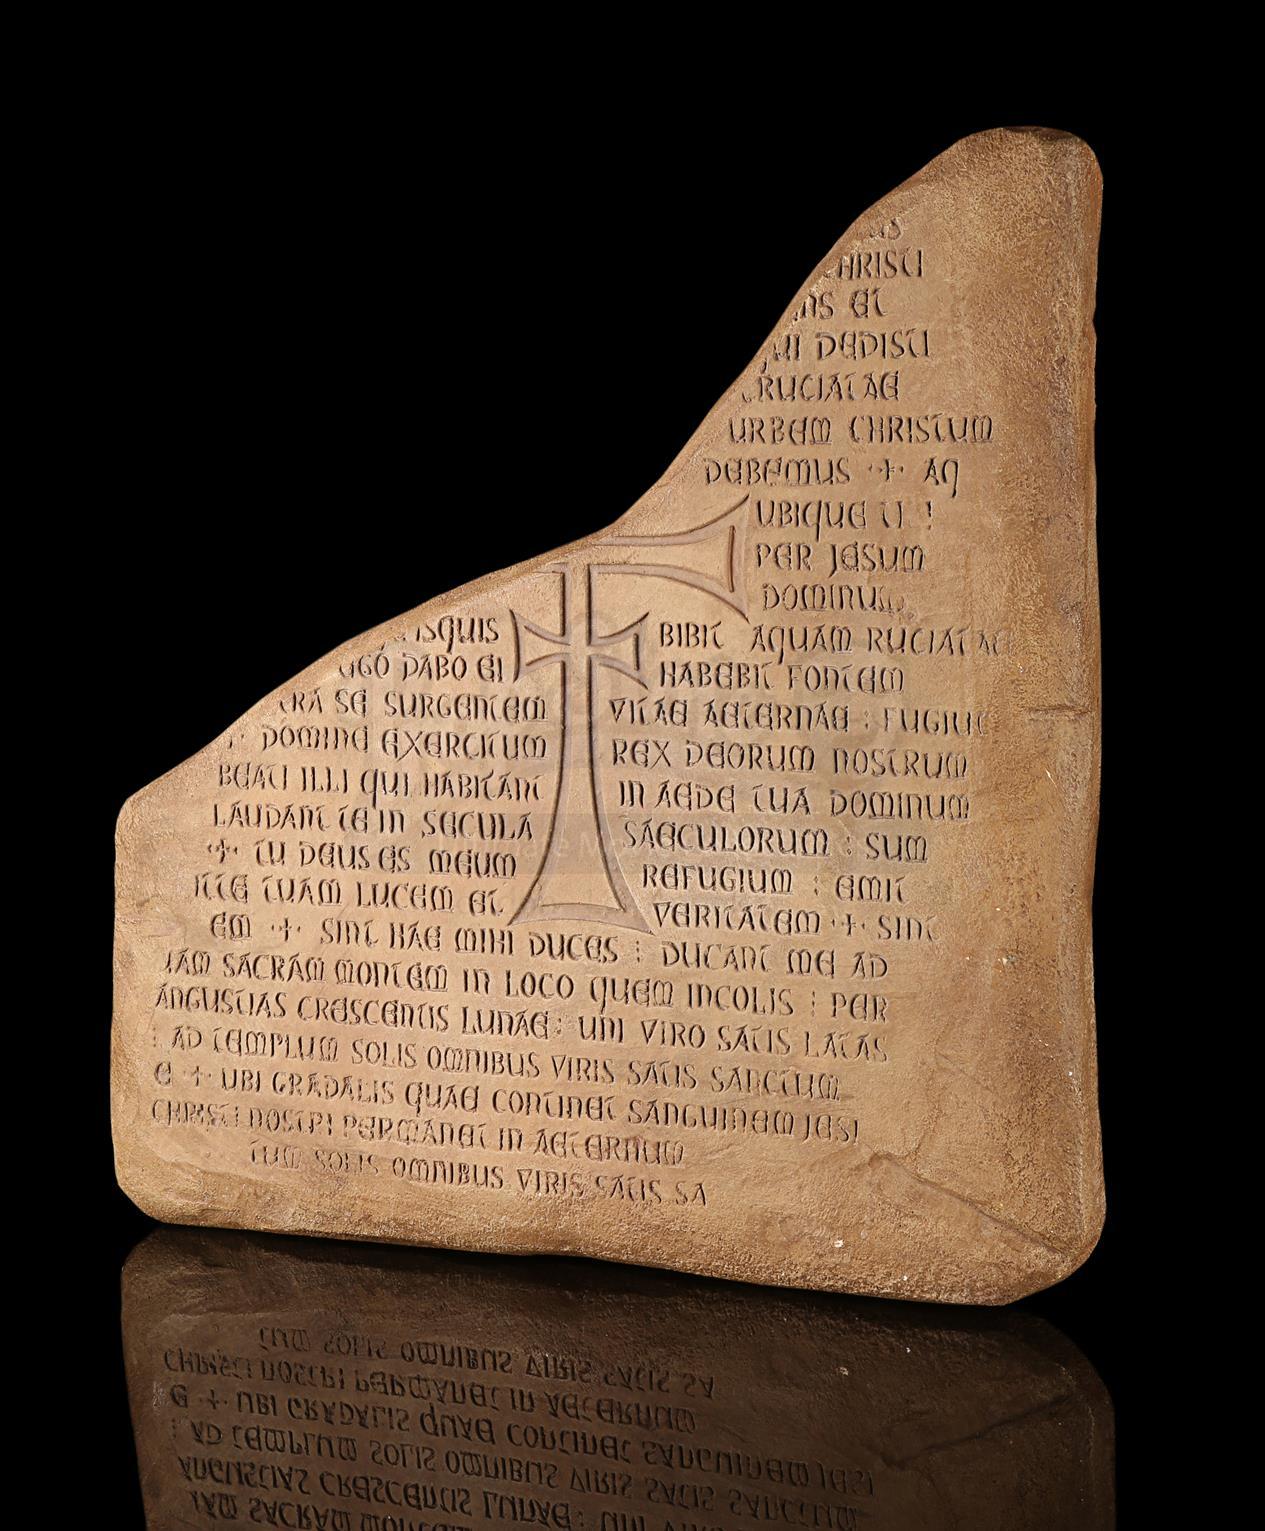 CHRISTI
ET
QUI DEDISTI
CRUCIATAE
URBEM CHRISTUM
DEBEMUS · + · AQ
UBIQUE
PER JESUM
DOMINUM
QUISQUIS BIBIT AQUAM RUCIATAE
EGO DABO EI HABEBIT FONTEM
TRA SE SURGENTEM VITAE AETERNAE : FUGIUN
DOMINE EXERCITUM REX DEORUM NOSTRUM
BEATI ILLI QUI HABITANT IN AEDE TUA DOMINUM
LAUDANT TE IN SECULA SAECULORUM : SUM
· + · TU DEUS ES MEUM REFUGIUM : EMIT
ITTE TUAM LUCEM ET VERITATEM · + · SINT
EM · + · SINT HAE MIHI DUCES : DUCANT ME AD
IAM SACRAM MONTEM IN LOCO QUEM INCOLIS : PER
ANGUSTIAS CRESCENTIS LUNAE : UNI VIRO SATIS LATAS
: AD TEMPLUM SOLIS OMNIBUS VIRIS SATIS SANCTUM
E · + · UBI GRADALIS QUAE CONTINET SANGUINEM JESI
CHRISTI NOSTRI PERMANET IN AETERNUM
TUM SOLIS OMNIBUS VIRIS SATIS SA